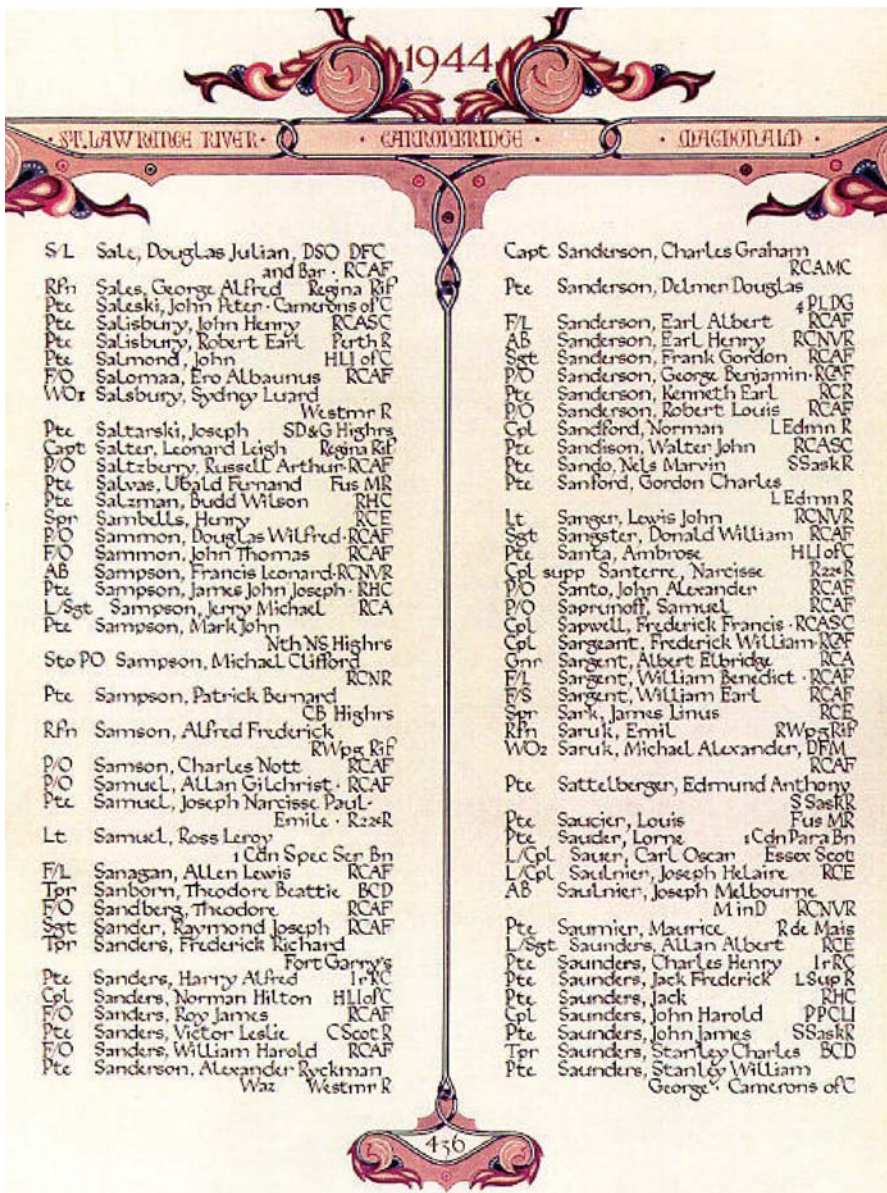 1944
· ST. LAWRENCE RIVER · · CARRONBRIDGE · · MACDONALD ·
S/L Sale, Douglas Julian, DSO DFC
and Bar · RCAF
Rfn Sales, George Alfred Regina Rif
Pte Saleski, John Peter · Camerons of C
Pte Salisbury, John Henry RCASC
Pte Salisbury, Robert Earl Perth R
Pte Salmond, John HLI of C
F/O Salomaa, Ero Albaunus RCAF
WO1 Salsbury, Sydney Luard
Westmr R
Pte Saltarski, Joseph SD&G Highrs
Capt Salter, Leonard Leigh Regina Rif
P/O Saltzberry, Russell Arthur · RCAF
Pte Salvas, Ubald Fernand Fus MR
Pte Salzman, Budd Wilson RHC
Spr Sambells, Henry RCE
P/O Sammon, Douglas Wilfred · RCAF
F/O Sammon, John Thomas RCAF
AB Sampson, Francis Leonard · RCNVR
Pte Sampson, James John Joseph · RHC
L/Sgt Sampson, Jerry Michael RCA
Pte Sampson, Mark John
Nth NS Highrs
Sto PO Sampson, Michael Clifford
RCNR
Pte Sampson, Patrick Bernard
CB Highrs
Rfn Samson, Alfred Frederick
RWpg Rif
P/O Samson, Charles Nott RCAF
P/O Samuel, Allan Gilchrist · RCAF
Pte Samuel, Joseph Narcisse Paul-
Emile · R22eR
Lt Samuel, Ross Leroy
1 Cdn Spec Ser Bn
F/L Sanagan, Allen Lewis RCAF
Tpr Sanborn, Theodore Beattie BCD
F/O Sandberg, Theodore RCAF
Sgt Sander, Raymond Joseph RCAF
Tpr Sanders, Frederick Richard
Fort Garry's
Pte Sanders, Harry Alfred IrRC
Cpl Sanders, Norman Hilton HLI of C
F/O Sanders, Roy James RCAF
Pte Sanders, Victor Leslie C Scot R
F/O Sanders, William Harold RCAF
Pte Sanderson, Alexander Ryckman
Waz Westmr R
Capt Sanderson, Charles Graham
RCAMC
Pte Sanderson, Delmer Douglas
4 PLDG
F/L Sanderson, Earl Albert RCAF
AB Sanderson, Earl Henry RCNVR
Sgt Sanderson, Frank Gordon RCAF
P/O Sanderson, George Benjamin · RCAF
Pte Sanderson, Kenneth Earl RCR
P/O Sanderson, Robert Louis RCAF
Cpl Sandford, Norman L Edmn R
Pte Sandison, Walter John RCASC
Pte Sando, Nels Marvin S Sask R
Pte Sanford, Gordon Charles
L Edmn R
Lt Sanger, Lewis John RCNVR
Sgt Sangster, Donald William RCAF
Pte Santa, Ambrose HLI of C
Cpl supp Santerre, Narcisse R22eR
P/O Santo, John Alexander RCAF
P/O Saprunoff, Samuel RCAF
Cpl Sapwell, Frederick Francis · RCASC
Cpl Sargeant, Frederick William · RCAF
Gnr Sargent, Albert Elbridge RCA
F/L Sargent, William Benedict · RCAF
F/S Sargent, William Earl RCAF
Spr Sark, James Linus RCE
Rfn Saruk, Emil RWpg Rif
WO2 Saruk, Michael Alexander, DFM
RCAF
Pte Sattelberger, Edmund Anthony
S Sask R
Pte Saucier, Louis Fus MR
Pte Sauder, Lorne 1 Cdn Para Bn
L/Cpl Sauer, Carl Oscar Essex Scot
L/Cpl Saulnier, Joseph Helaire RCE
AB Saulnier, Joseph Melbourne
M in D RCNVR
Pte Saumier, Maurice R de Mais
L/Sgt Saunders, Allan Albert RCE
Pte Saunders, Charles Henry IrRC
Pte Saunders, Jack Frederick L Sup R
Pte Saunders, Jack RHC
Cpl Saunders, John Harold PPCLI
Pte Saunders, John James S Sask R
Tpr Saunders, Stanley Charles BCD
Pte Saunders, Stanley William
George · Camerons of C
436